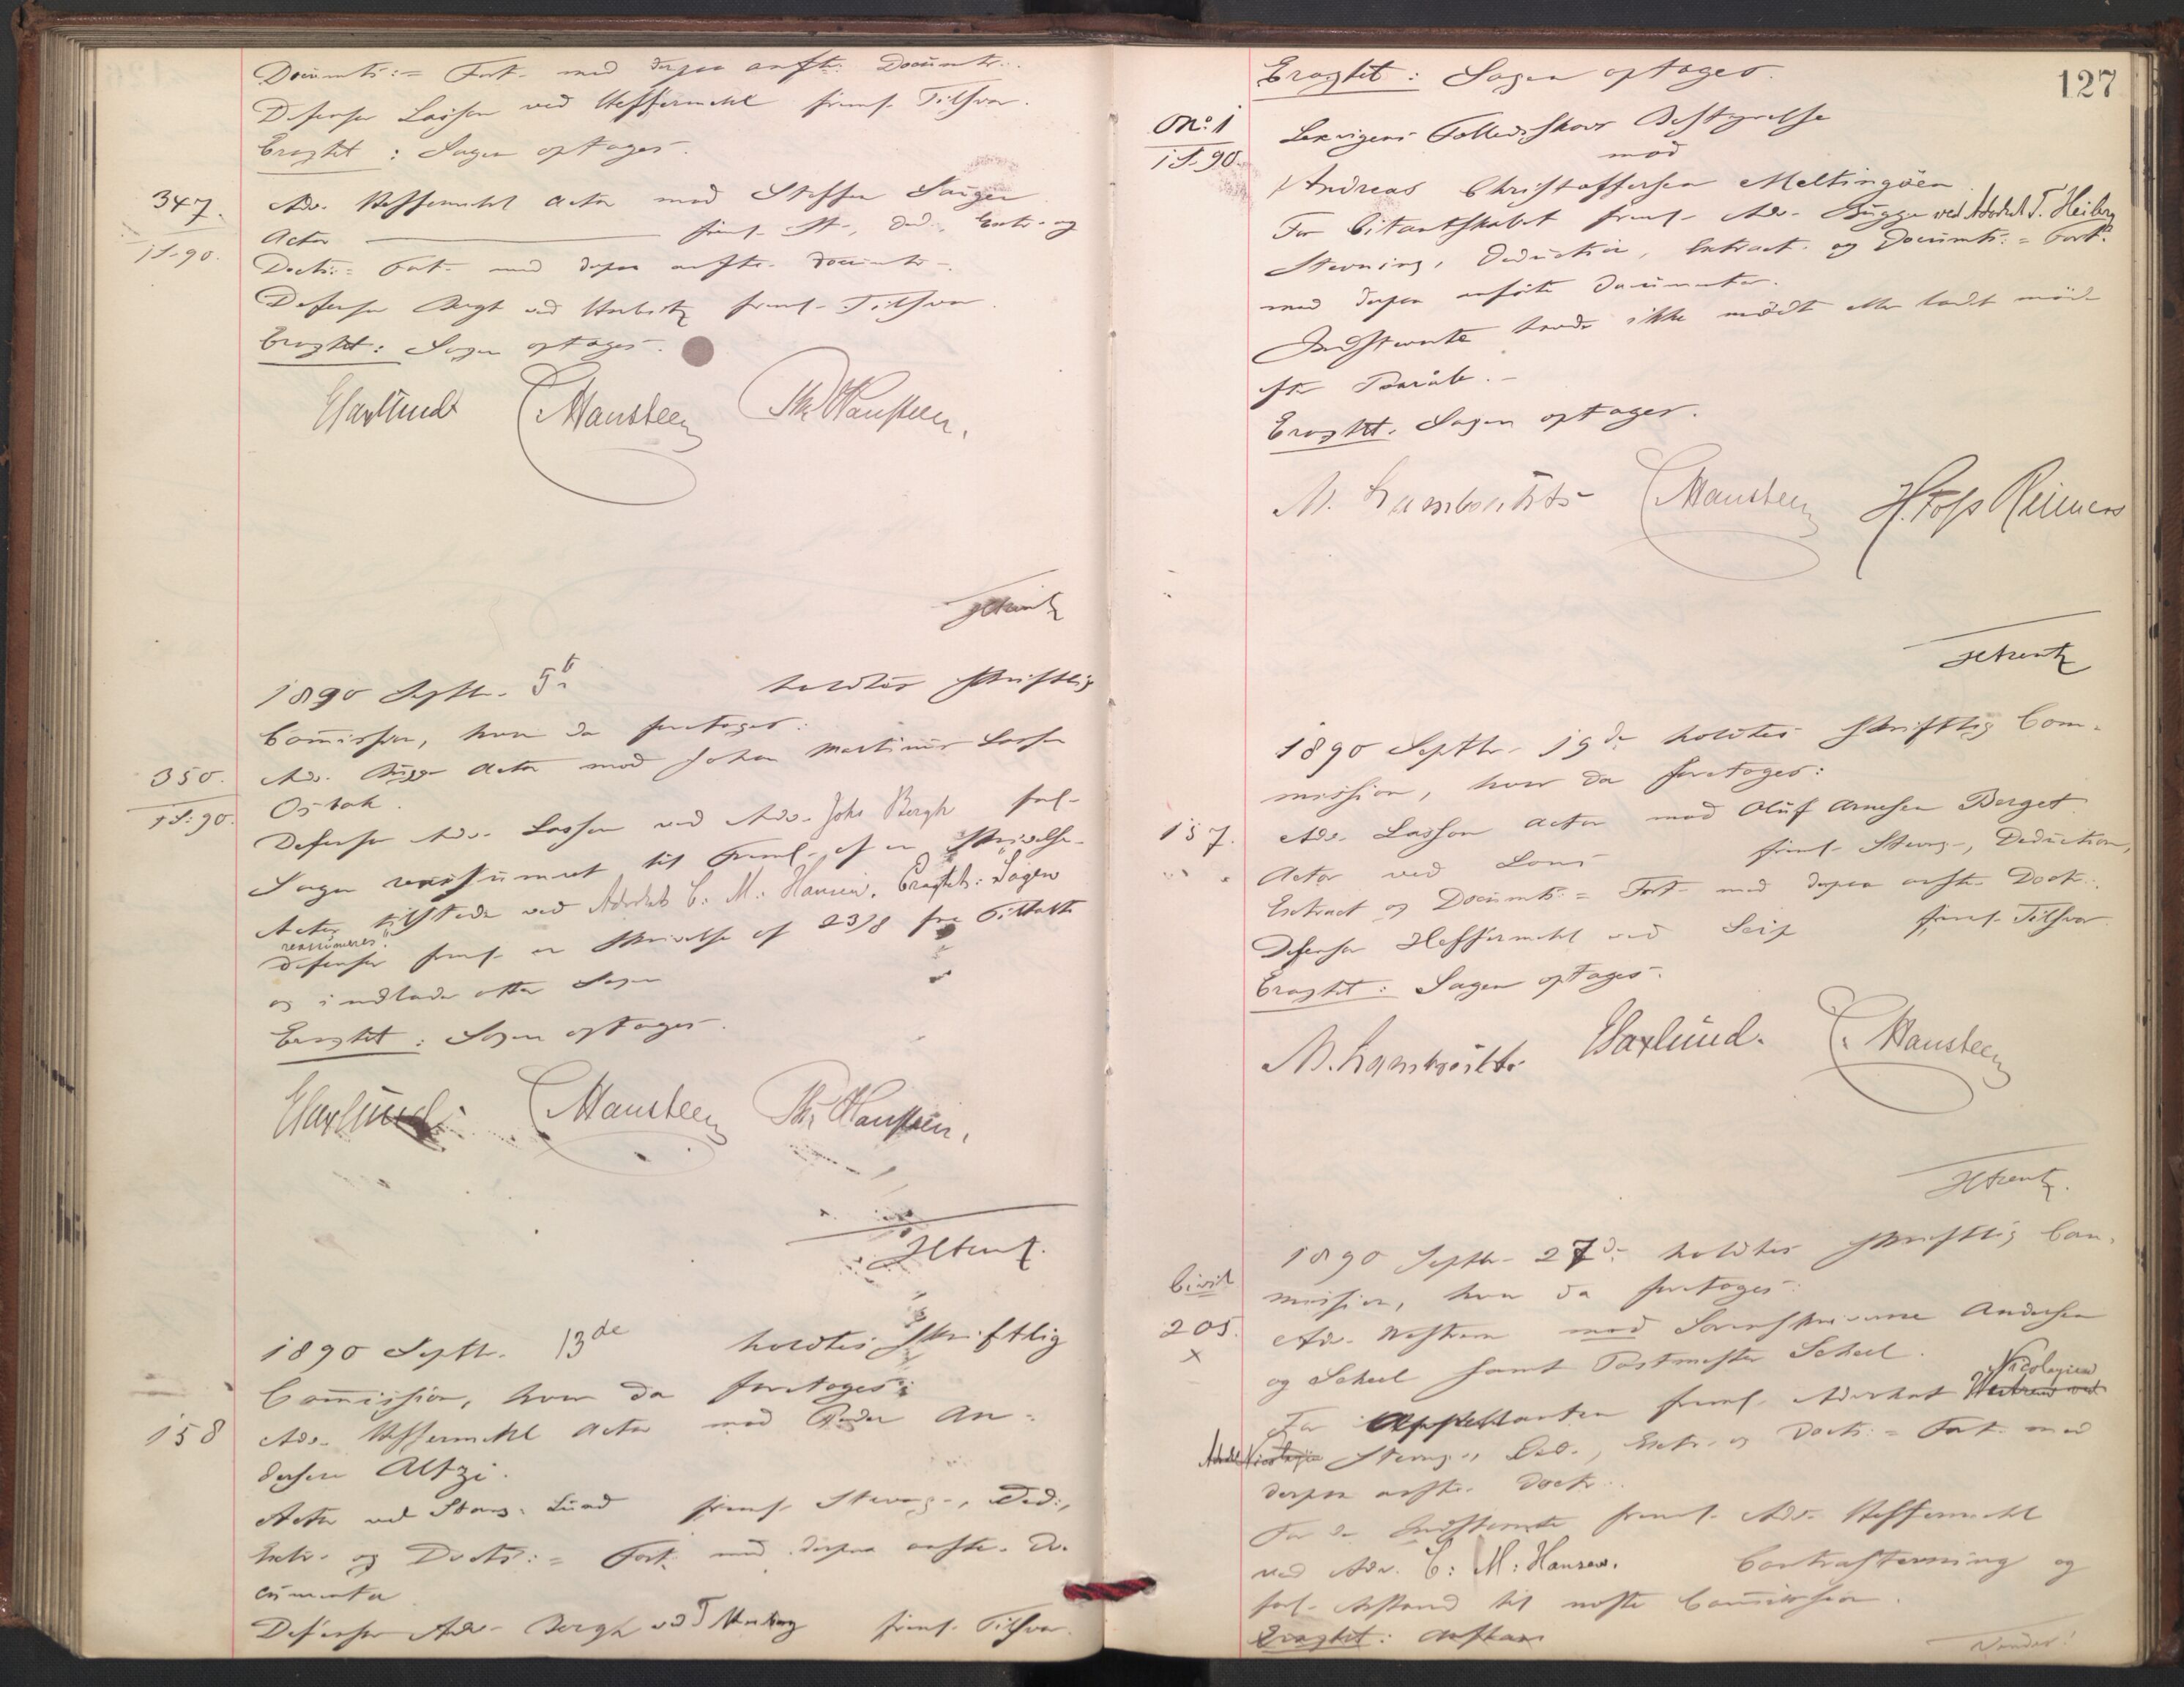 Documts:= Fort. med derpaa anfte. Documtr.
Defensor Lasson ved Heffermehl freml. Tilsvar.
Eragtet: Sagen optages.
347.
1 S. 90.
Adv. Heffermehl Actor mod Steffen
Actor freml. St-, Ded., Extr. og
Docts:= Fort. med derpaa anfte. Documtr.
Defensor Bergh ved freml. Tilsvar.
Eragtet: Sagen optages.
ESaxlund CHansteen
HKrentz
1890 Septbr. 5te holdtes skriftlig
Commission, hvor da foretoges:
350.
1 S: 90.
Adv. Bugge Actor mod Johan Martinus Larsen
Osbak.
Defensor Adv. Lasson ved Adv. Johs Bergh forl.
Sagen reassumeret til freml. af en Skrivelse.
Actor tilstede ved Advokat C. M. Hansen. Eragtet: Sagen
reassumeres.
Defensor freml. en Skrivelse af 23/8 fra Tiltalte
og indlader atter Sagen
Eragtet: Sagen optages.
ESaxlund. CHansteen
HKrentz.
1890 Septbr. 13de holdtes skriftlig
Commission, hvor da foretoges:
158
Adv. Heffermehl Actor mod Peder An-
dersen
Actor ved Lund freml. Stevng-, Ded:,
Extr. og Docts:= Fort. med derpaa anfte. Do-
cumenter
Defensor Adv. Bergh ved freml. Tilsvar.
127
Eragtet: Sagen optages.
No. 1
1 S. 90.
Lexvigens Fælledsskovs Bestyrelse
mod
Andreas Christoffersen Meltingöen
For Citantskabet freml. Adv. Bugge ved Advokat T. Heiberg
Stevning, Deduction, Extract og Documts:= Fort.
med derpaa anförte Documenter.
Indstevnte havde ikke mødt eller ladt møde
efter Paaraab.
Eragtet. Sagen optages.
M. Lambrechts CHansteen H. Foss Reimers
HKrentz
1890 Septbr. 19de holdtes skriftlig Com-
mission, hvor da foretoges:
157.
Adv. Lasson Actor mod Oluf Arnesen Berget.
Actor ved freml. Stevng-, Deduction,
Extract og Documts:= Fort. med derpaa anfte. Doctr.
Defensor Heffermehl ved Seip freml. Tilsvar
Eragtet: Sagen optages.
M. Lambrechts. ESaxlund. CHansteen
HKrentz.
1890 Septbr. 27de holdtes skriftlig Com-
mission, hvor da foretoges:
Civil
205.
x
Adv. mod Sorenskriverne Andersen
og Scheel samt Postmester Scheel.
Nicolaysen
For Appellanten freml. Advokat
Stevng-, Ded., Extr. og Docts:= Fort. med
derpaa anfte. Doctr.
For de Indstevnte freml. Adv. Heffermehl
ved Adv. C. M. Hansen. Contrastevning og
forl. Anstand til næste Commission.
Eragtet: Anstand
Vender!